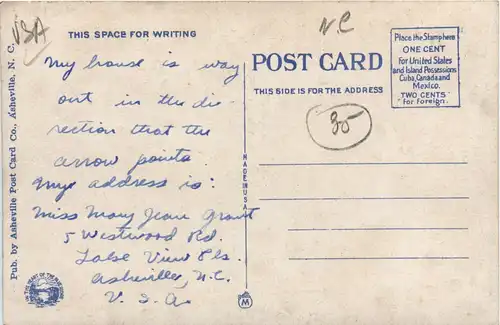 USA
N.C
THIS SPACE FOR WRITING
My house is way
out in the di-
rection that the
arrow points.
My address is:
Miss Mary Jean Grant
5 Westwood Rd.
View
Asheville, N.C.
U. S. A.
Pub. by Asheville Post Card Co., Asheville, N. C.
MADE IN USA
POST CARD
THIS SIDE IS FOR THE ADDRESS
Place the Stamp here
ONE CENT
for United States
and Island Possessions
Cuba, Canada and
Mexico.
TWO CENTS
for Foreign.
35
M